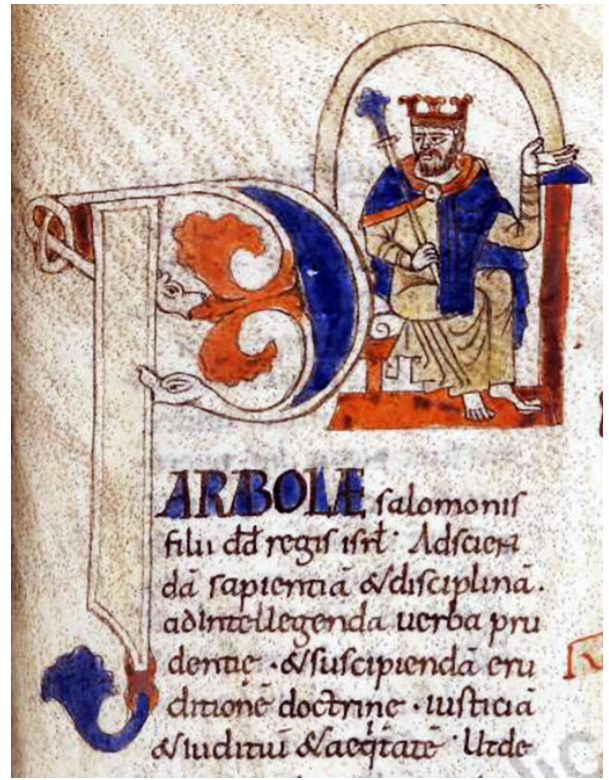 PARABOLAE salomonis
filii dd̄ regis isrl̄. Ad scien
dā sapientiā & disciplinā.
ad intellegenda uerba pru
dentię. & suscipiendā eru
ditionē doctrinę. iusticiā
& iudiciū & aeqͥtatē. Ut de